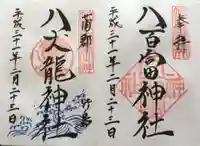 奉拝
八百富神社
平成三十一年二月二十三日
蒲郡
竹島
八大龍神社
平成三十一年二月二十三日